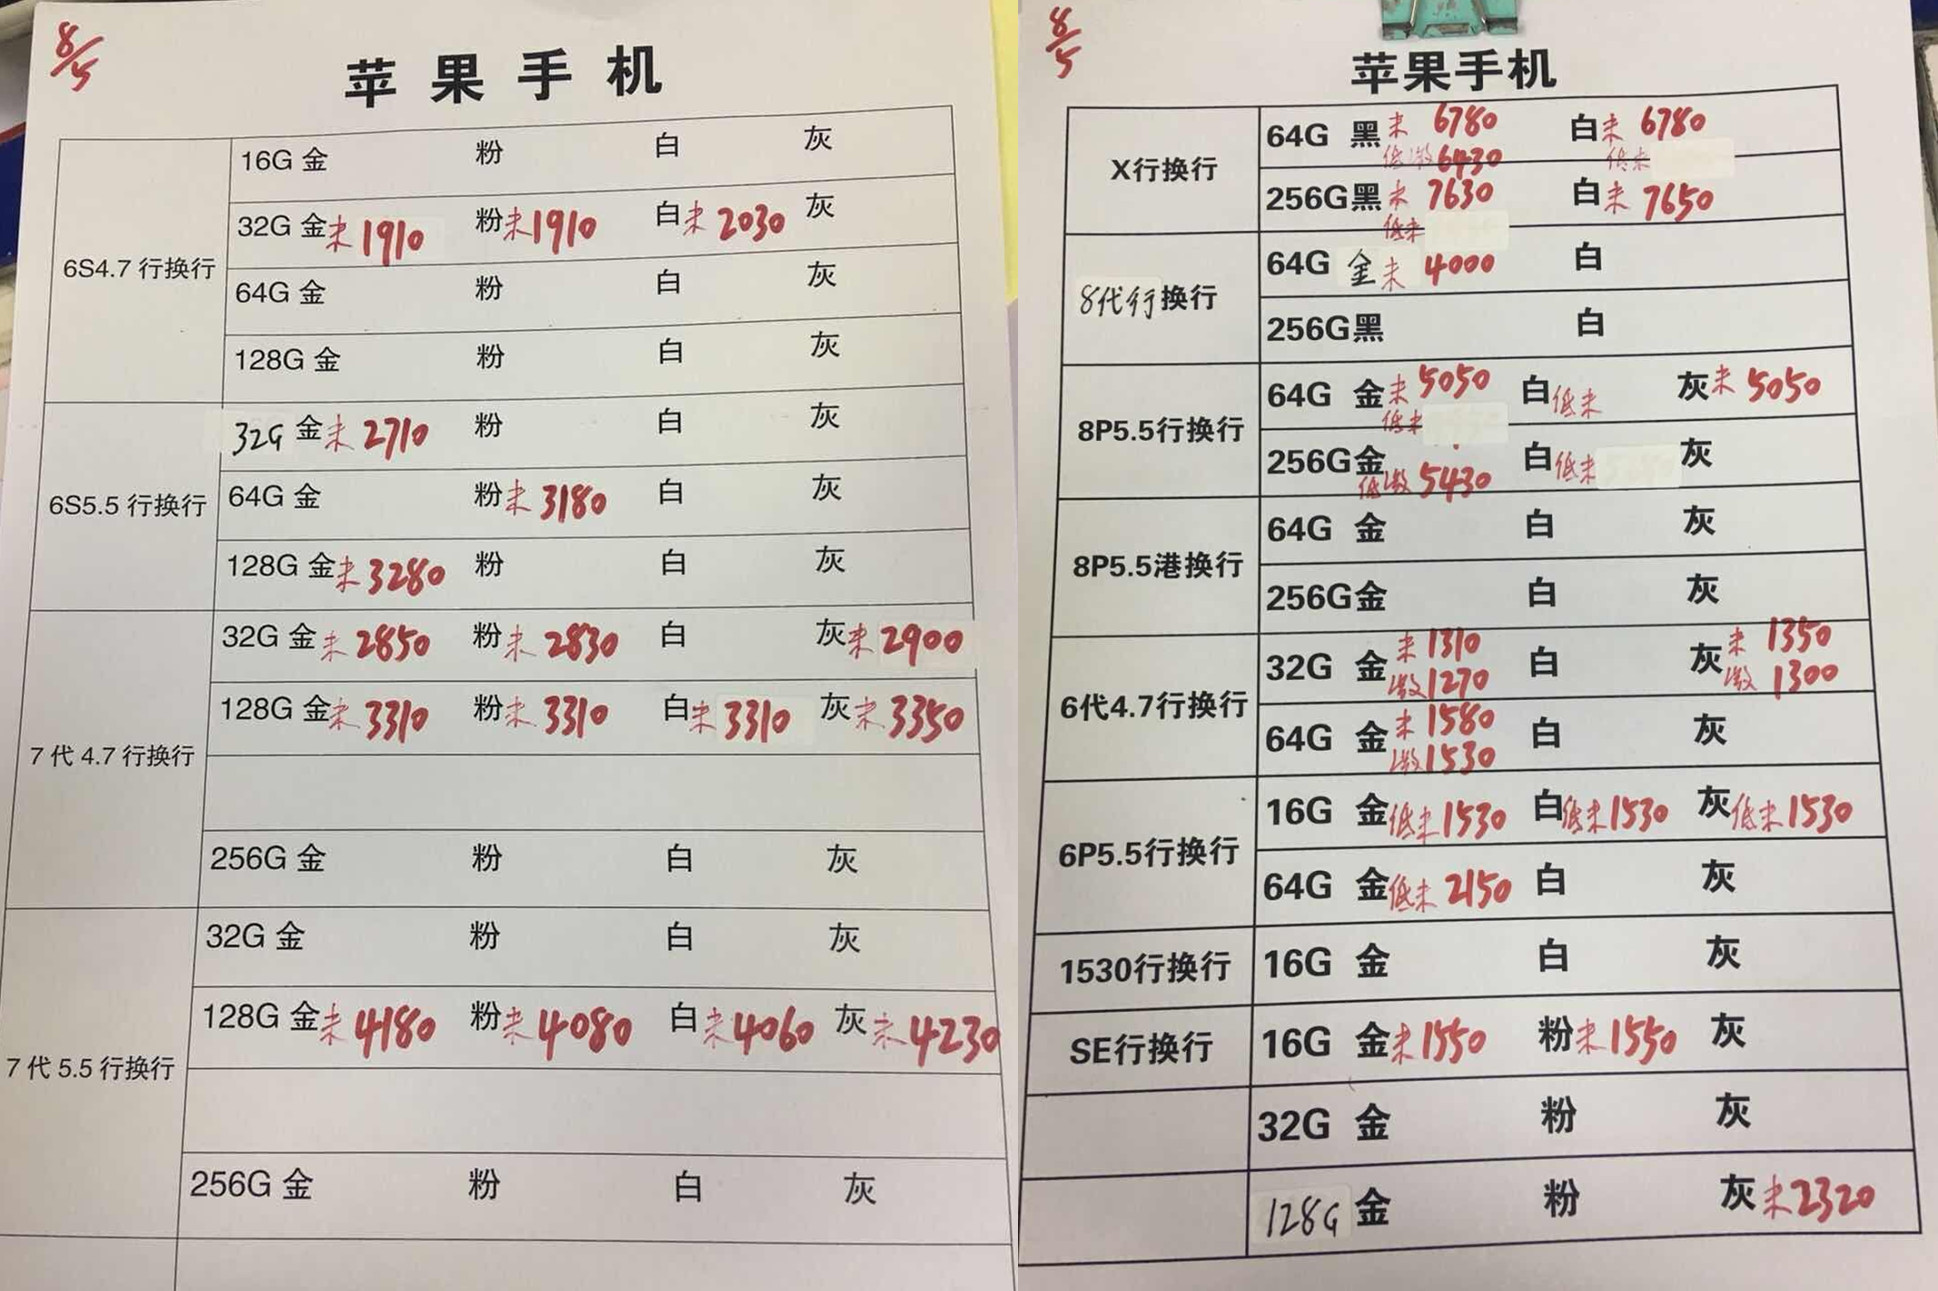 8/5
苹果手机
6S4.7行换行
16G 金 粉 白 灰
32G 金未1910 粉未1910 白未2030 灰
64G 金 粉 白 灰
128G 金 粉 白 灰
6S5.5行换行
32G 金未2710 粉 白 灰
64G 金 粉未3180 白 灰
128G 金未3280 粉 白 灰
7代4.7行换行
32G 金未2850 粉未2830 白 灰未2900
128G 金未3310 粉未3310 白未3310 灰未3350
256G 金 粉 白 灰
7代5.5行换行
32G 金 粉 白 灰
128G 金未4180 粉未4080 白未4060 灰未4230
256G 金 粉 白 灰
8/5
苹果手机
X行换行
64G 黑未6780 白未6780
低激6430 低未
256G黑未7630 白未7650
低未
8代行换行
64G 金未4000 白
256G黑 白
8P5.5行换行
64G 金未5050 白低未 灰未5050
低未
256G金 白低未 灰
低激5430
8P5.5港换行
64G 金 白 灰
256G金 白 灰
6代4.7行换行
32G 金未1310 白 灰未1350
激1270 激1300
64G 金未1580 白 灰
激1530
6P5.5行换行
16G 金低未1530 白低未1530 灰低未1530
64G 金低未2150 白 灰
1530行换行
16G 金 白 灰
SE行换行
16G 金未1550 粉未1550 灰
32G 金 粉 灰
128G 金 粉 灰未2320